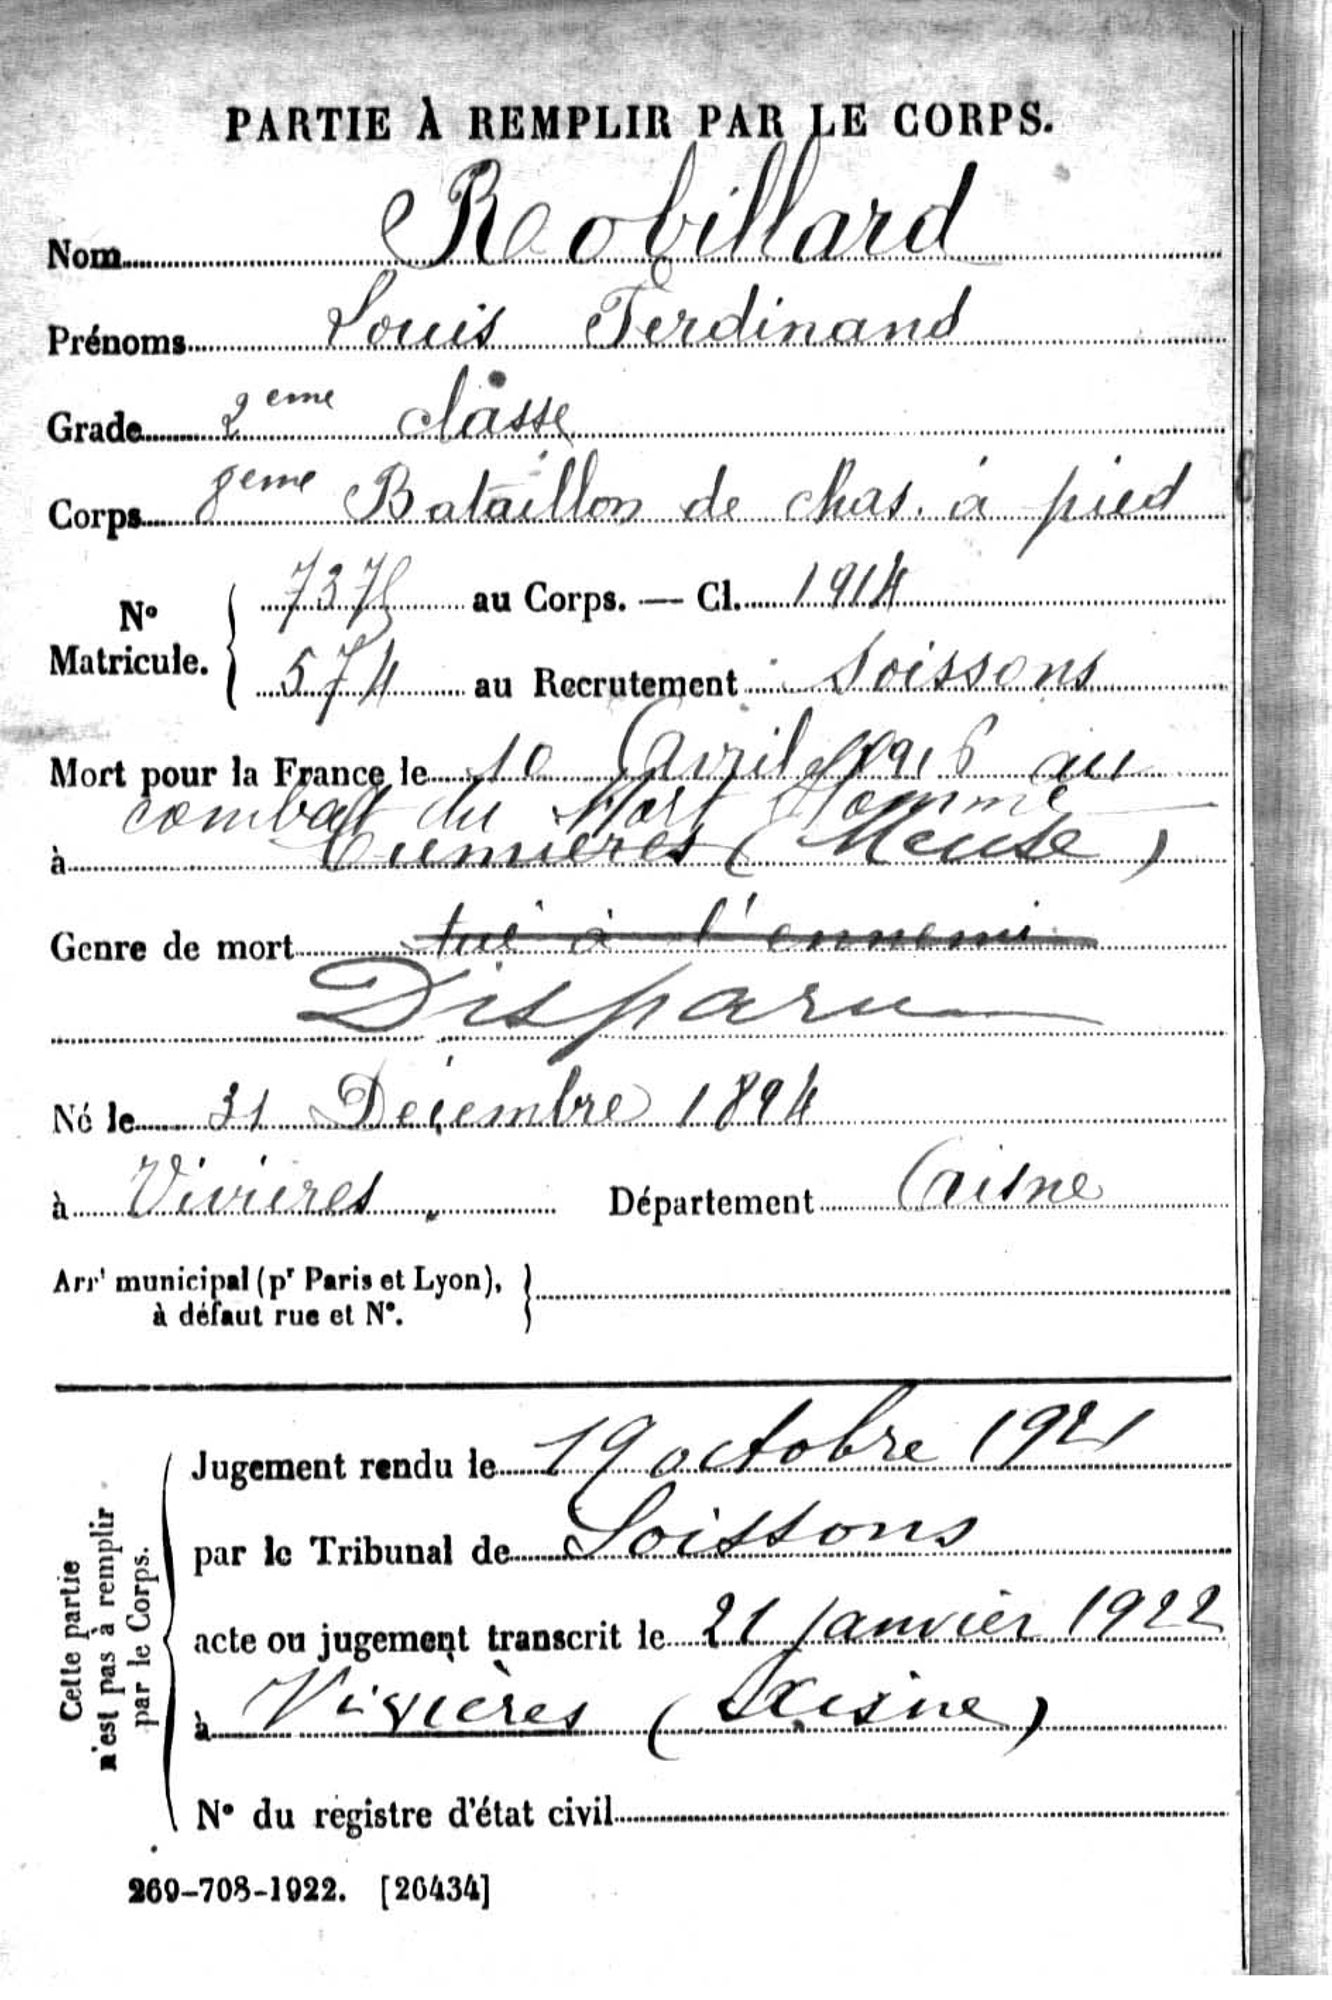 PARTIE À REMPLIR PAR LE CORPS.
Nom Robillard
Prénoms Louis Ferdinand
Grade 2eme classe
Corps 8eme Bataillon de chas. à pied
No Matricule. { 7375 au Corps. — Cl. 1914
574 au Recrutement Soissons
Mort pour la France le 10 Avril 1916 au
combat du Mort Homme
à Cumières (Meuse)
Genre de mort tué à l'ennemi
Disparu
Né le 31 Décembre 1894
à Vivières Département Aisne
Arrt municipal (pr Paris et Lyon),
à défaut rue et N°.
Cette partie
n'est pas à remplir
par le Corps.
Jugement rendu le 19 octobre 1921
par le Tribunal de Soissons
acte ou jugement transcrit le 21 janvier 1922
à Vivières (Aisne)
N° du registre d'état civil
269-708-1922. [26434]